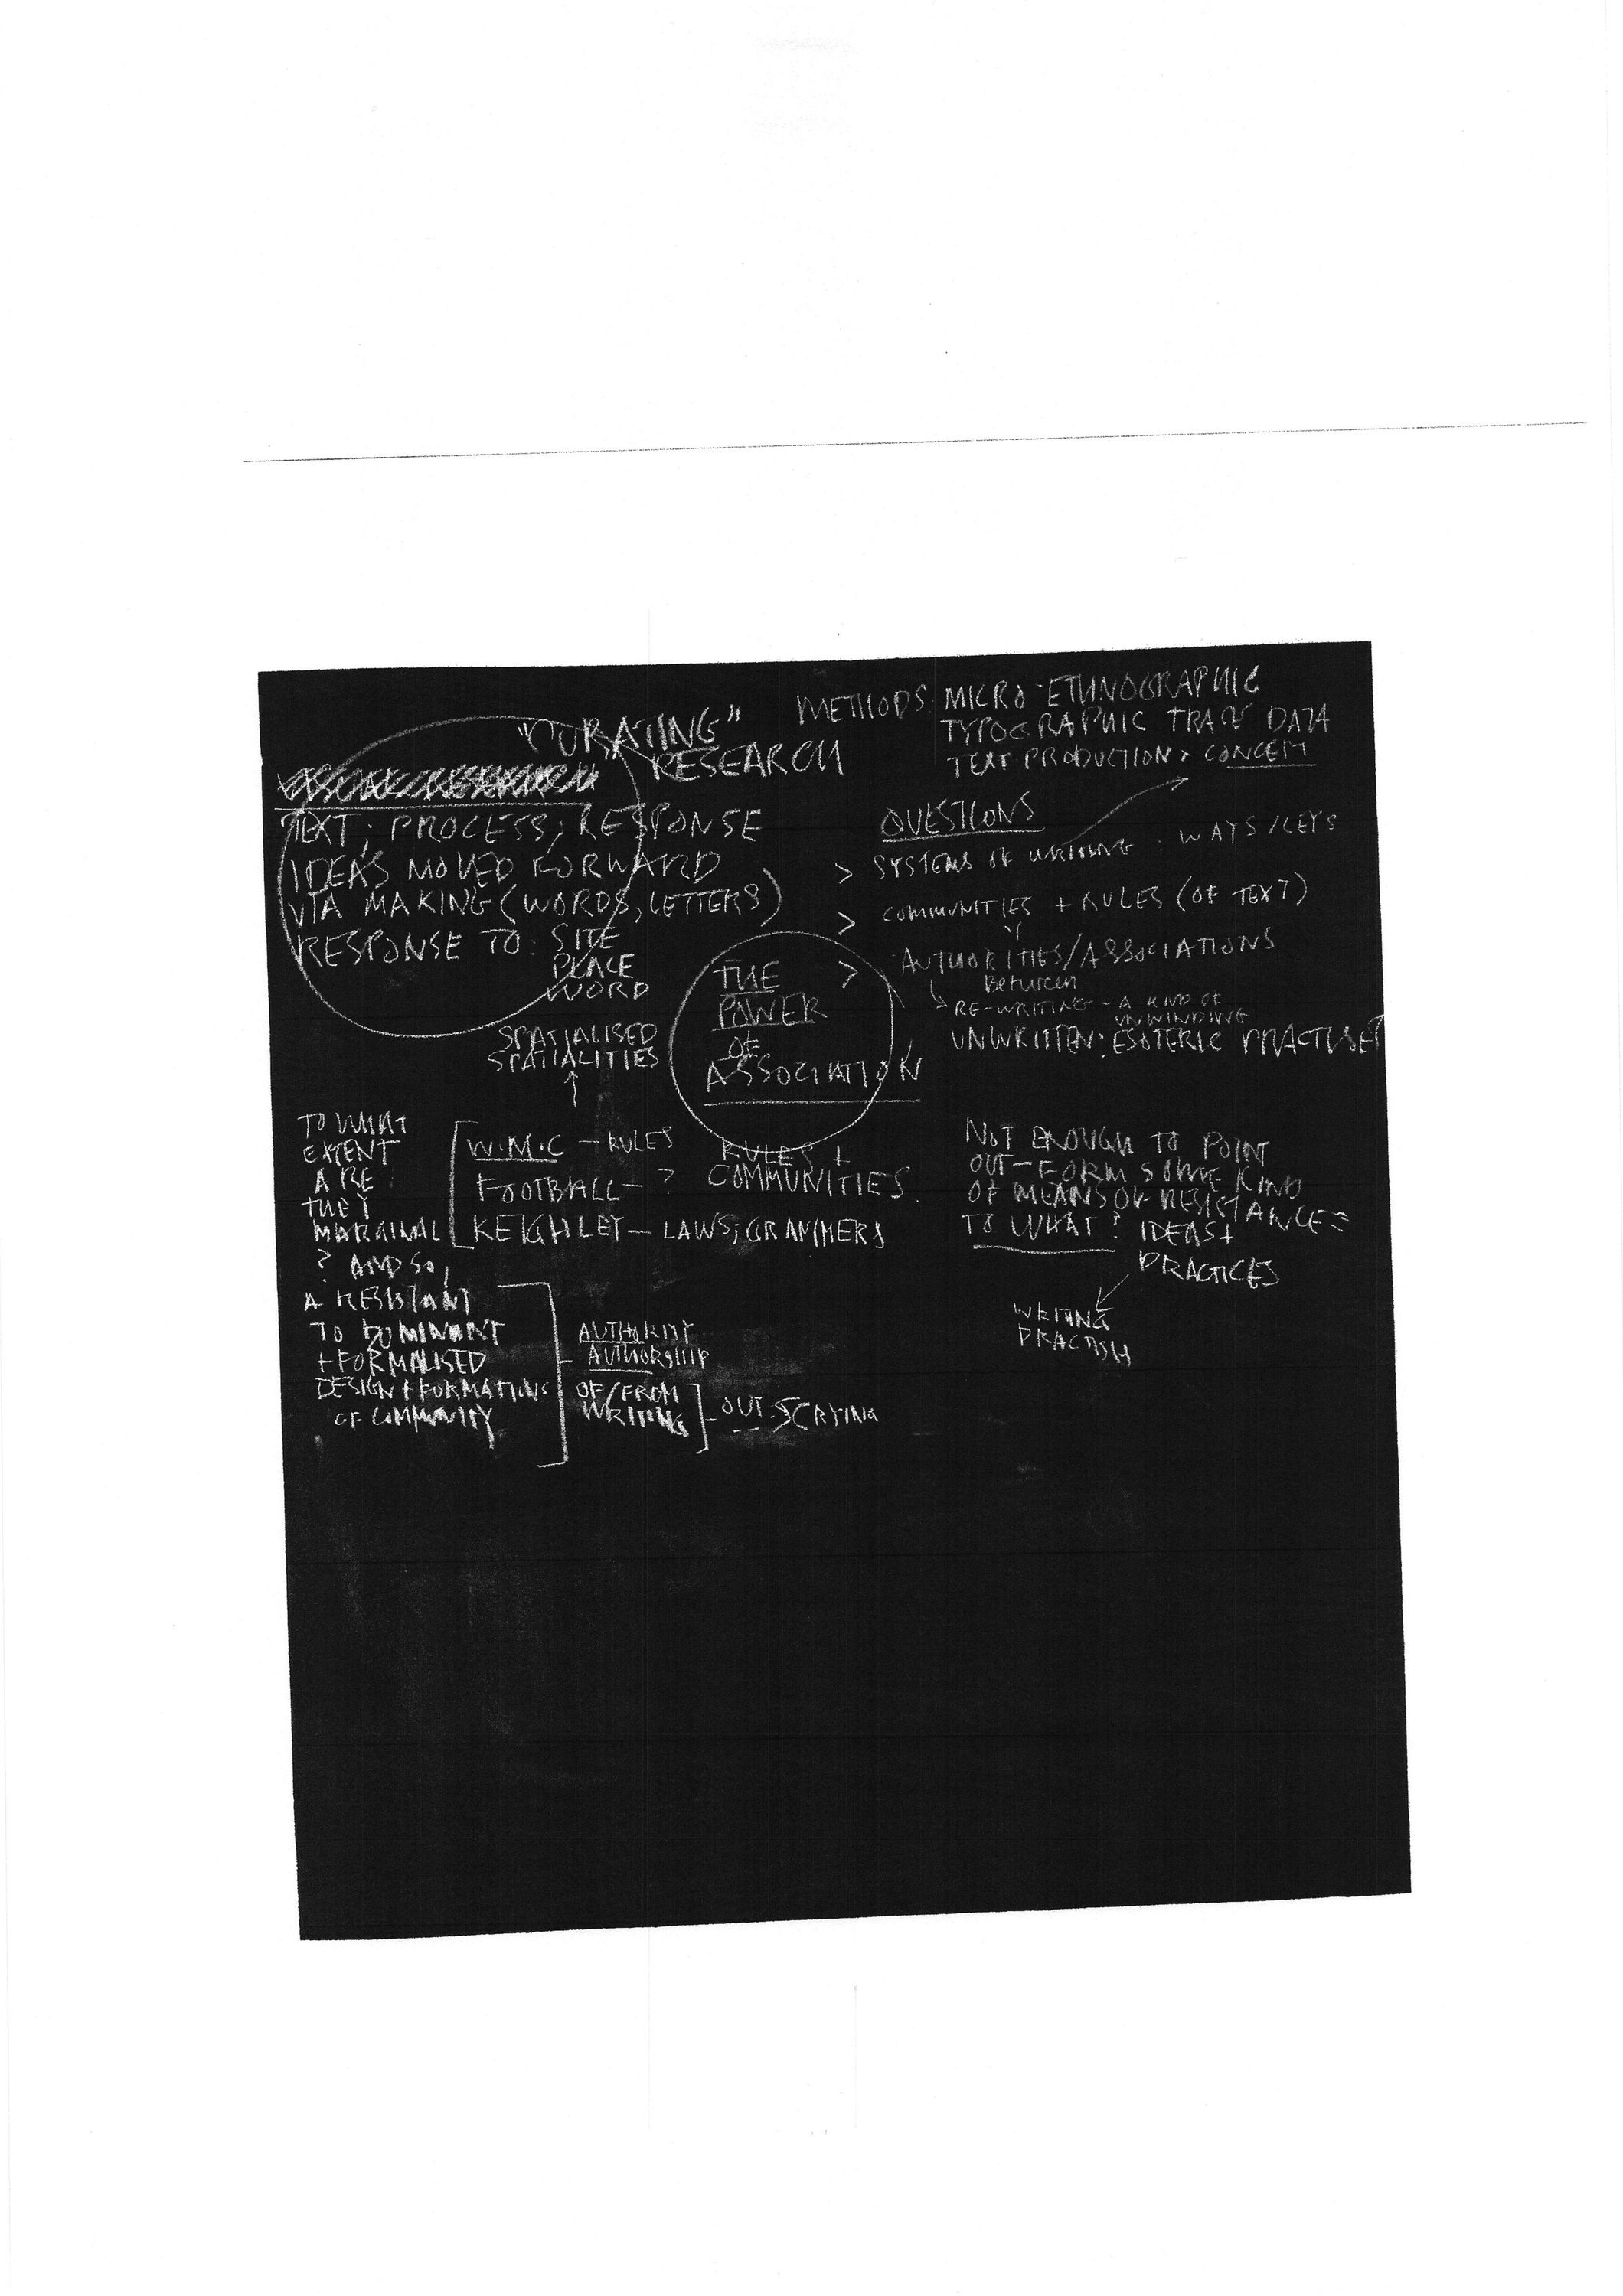 "CURATING"
RESEARCH
TEXT; PROCESS; RESPONSE
IDEAS MOVED FORWARD
VIA MAKING (WORDS, LETTERS)
RESPONSE TO: SITE
PLACE
WORD
SPATIALISED
SPATIALITIES
METHODS: MICRO-ETHNOGRAPHIC
TYPOGRAPHIC TRACE DATA
TEXT PRODUCTION + CONCEPT
QUESTIONS
> SYSTEMS OF WRITING : WAYS/
> COMMUNITIES + RULES (OF TEXT)
> AUTHORITIES/ASSOCIATIONS
Between
RE-WRITING - A KIND OF
UNWINDING
UNWRITTEN: ESOTERIC PRACTISES
THE
POWER
OF
ASSOCIATION
RULES +
COMMUNITIES.
TO WHAT
EXTENT
ARE
THEY
MARGINAL
? AND SO,
A RESISTANT
TO DOMINANT
+ FORMALISED
DESIGN + FORMATIONS
OF COMMUNITY
W.M.C - RULES
FOOTBALL - ?
KEIGHLEY - LAWS; GRAMMERS
AUTHORITY
AUTHORSHIP
OF/FROM
WRITING
OUT-SCRYING
NOT ENOUGH TO POINT
OUT - FORM SOME KIND
OF MEANS OF RESISTANCE =
TO WHAT? IDEAS +
PRACTICES
WRITING
PRACTISH